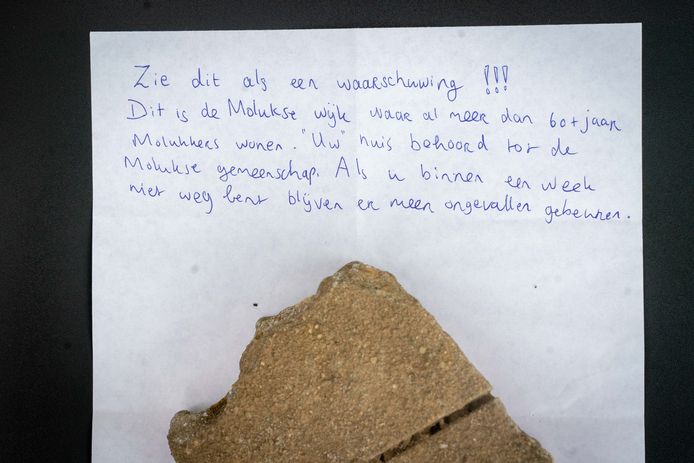 Zie dit als een waarschuwing !!!
Dit is de Molukse wijk waar al meer dan 60+ jaar
Molukkers wonen. "Uw" huis behoord tot de
Molukse gemeenschap. Als u binnen een week
niet weg bent blijven er meer ongevallen gebeuren.